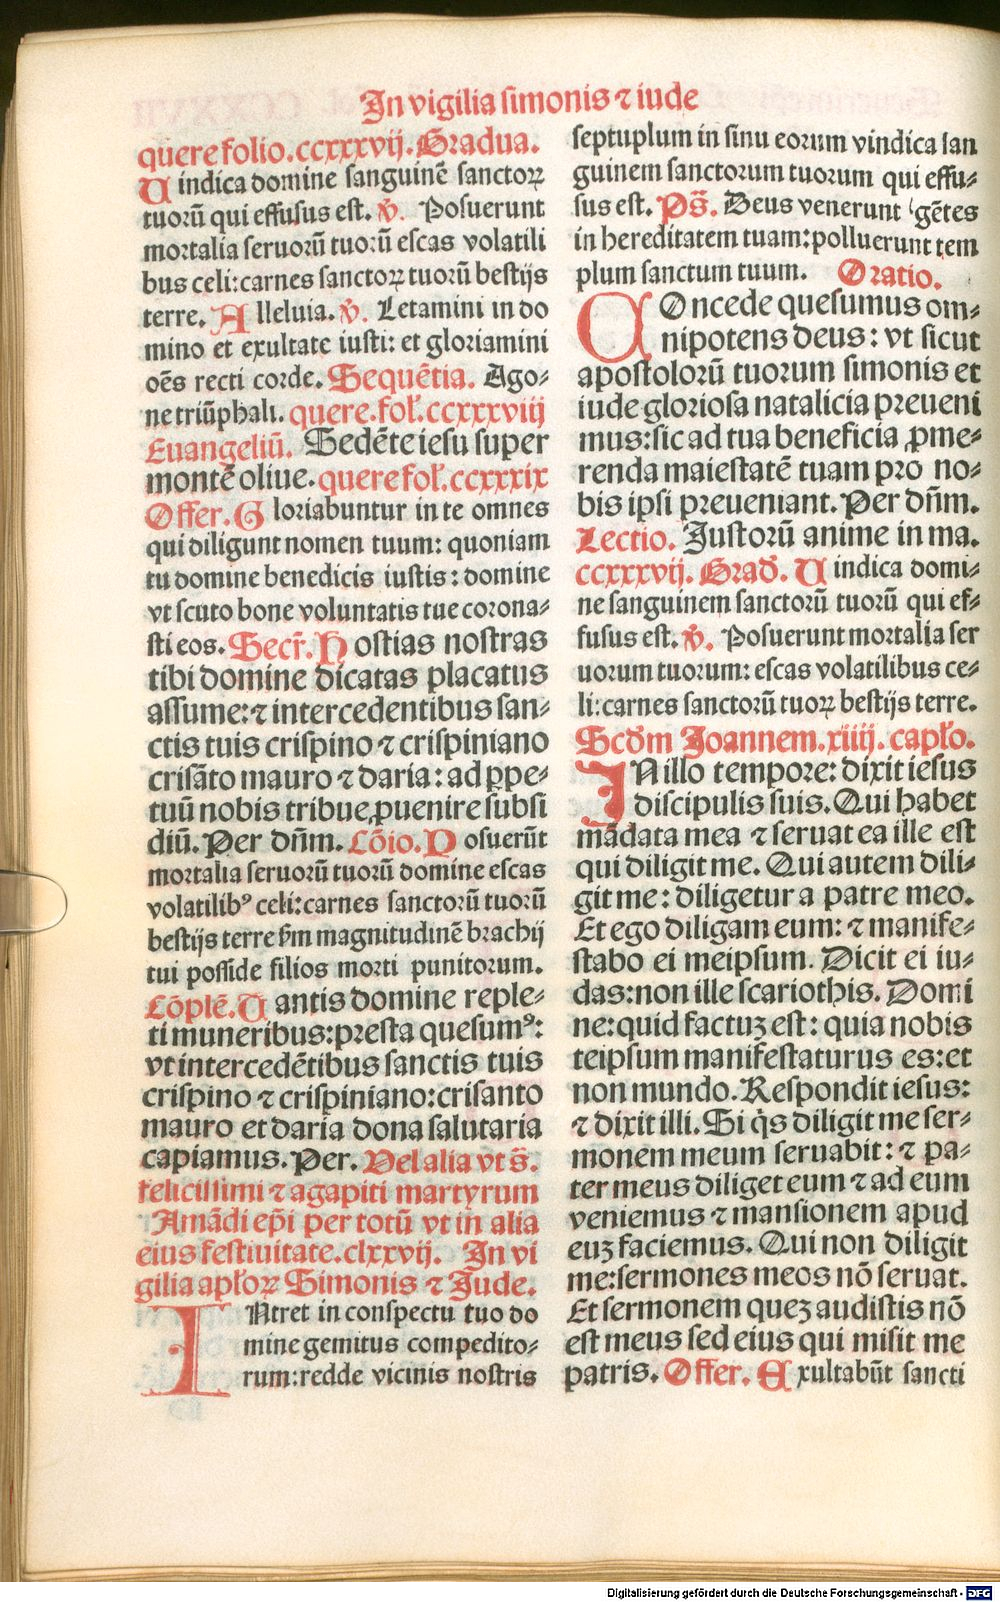 In vigilia simonis ⁊ iude
quere folio.ccxxxvij. Gradua.
Uindica domine sanguinẽ sanctoꝝ
tuorũ qui effusus est. ℣. Posuerunt
mortalia seruorũ tuorũ escas volatili
bus celi: carnes sanctoꝝ tuorũ bestijs
terre. Alleluia. ℣. Letamini in do
mino et exultate iusti: et gloriamini
oẽs recti corde. Sequẽtia. Ago⸗
ne triũphali. quere.fol̃.ccxxxviij
Euangeliũ. Sedẽte iesu super
montẽ oliue. quere fol̃.ccxxxix
Offer. Gloriabuntur in te omnes
qui diligunt nomen tuum: quoniam
tu domine benedicis iustis: domine
vt scuto bone voluntatis tue corona⸗
sti eos. Secr̃. Hostias nostras
tibi domine dicatas placatus
assume: ⁊ intercedentibus san⸗
ctis tuis crispino ⁊ crispiniano
crisãto mauro ⁊ daria: ad ꝑpe⸗
tuũ nobis tribue ꝓuenire subsi
diũ. Per dñm. Cõio. Posuerũt
mortalia seruorũ tuorũ domine escas
volatilibꝰ celi: carnes sanctorũ tuorũ
bestijs terre ẜm magnitudinẽ brachij
tui posside filios morti punitorum.
Cõplẽ. Uantis domine reple⸗
ti muneribus: presta quesumꝰ:
vt intercedẽtibus sanctis tuis
crispino ⁊ crispiniano: crisanto
mauro et daria dona salutaria
capiamus. Per. Vel alia vt s̃.
felicissimi ⁊ agapiti martyrum
Amãdi ep̃i per totũ vt in alia
eius festiuitate. clxxvij. In vi
gilia apl̃oꝝ Simonis ⁊ Jude.
INtret in conspectu tuo do
mine gemitus compedito⸗
rum: redde vicinis nostris
septuplum in sinu eorum vindica san
guinem sanctorum tuorum qui effu⸗
sus est. Ps̃. Deus venerunt gẽtes
in hereditatem tuam: polluerunt tem
plum sanctum tuum. Oratio.
COncede quesumus om⸗
nipotens deus: vt sicut
apostolorũ tuorum simonis et
iude gloriosa natalicia preueni
mus: sic ad tua beneficia ꝓme⸗
renda maiestatẽ tuam pro no⸗
bis ipsi preueniant. Per dñm.
Lectio. Justorũ anime in ma.
ccxxxvij. Grad̃. Uindica domi⸗
ne sanguinem sanctorũ tuorũ qui ef⸗
fusus est. ℣. Posuerunt mortalia ser
uorum tuorum: escas volatilibus ce⸗
li: carnes sanctorũ tuoꝝ bestijs terre.
Scd̃m Joannem. xiiij. capl̃o.
IN illo tempore: dixit iesus
discipulis suis. Qui habet
mãdata mea ⁊ seruat ea ille est
qui diligit me. Qui autem dili⸗
git me: diligetur a patre meo.
Et ego diligam eum: ⁊ manife⸗
stabo ei meipsum. Dicit ei iu⸗
das: non ille scariothis. Domi
ne: quid factuꝫ est: quia nobis
teipsum manifestaturus es: et
non mundo. Respondit iesus:
⁊ dixit illi. Si q̇s diligit me ser⸗
monem meum seruabit: ⁊ pa⸗
ter meus diliget eum ⁊ ad eum
veniemus ⁊ mansionem apud
euꝫ faciemus. Qui non diligit
me: sermones meos nõ seruat.
Et sermonem queꝫ audistis nõ
est meus sed eius qui misit me
patris. Offer. Exultabũt sancti
Digitalisierung gefördert durch die Deutsche Forschungsgemeinschaft - DFG